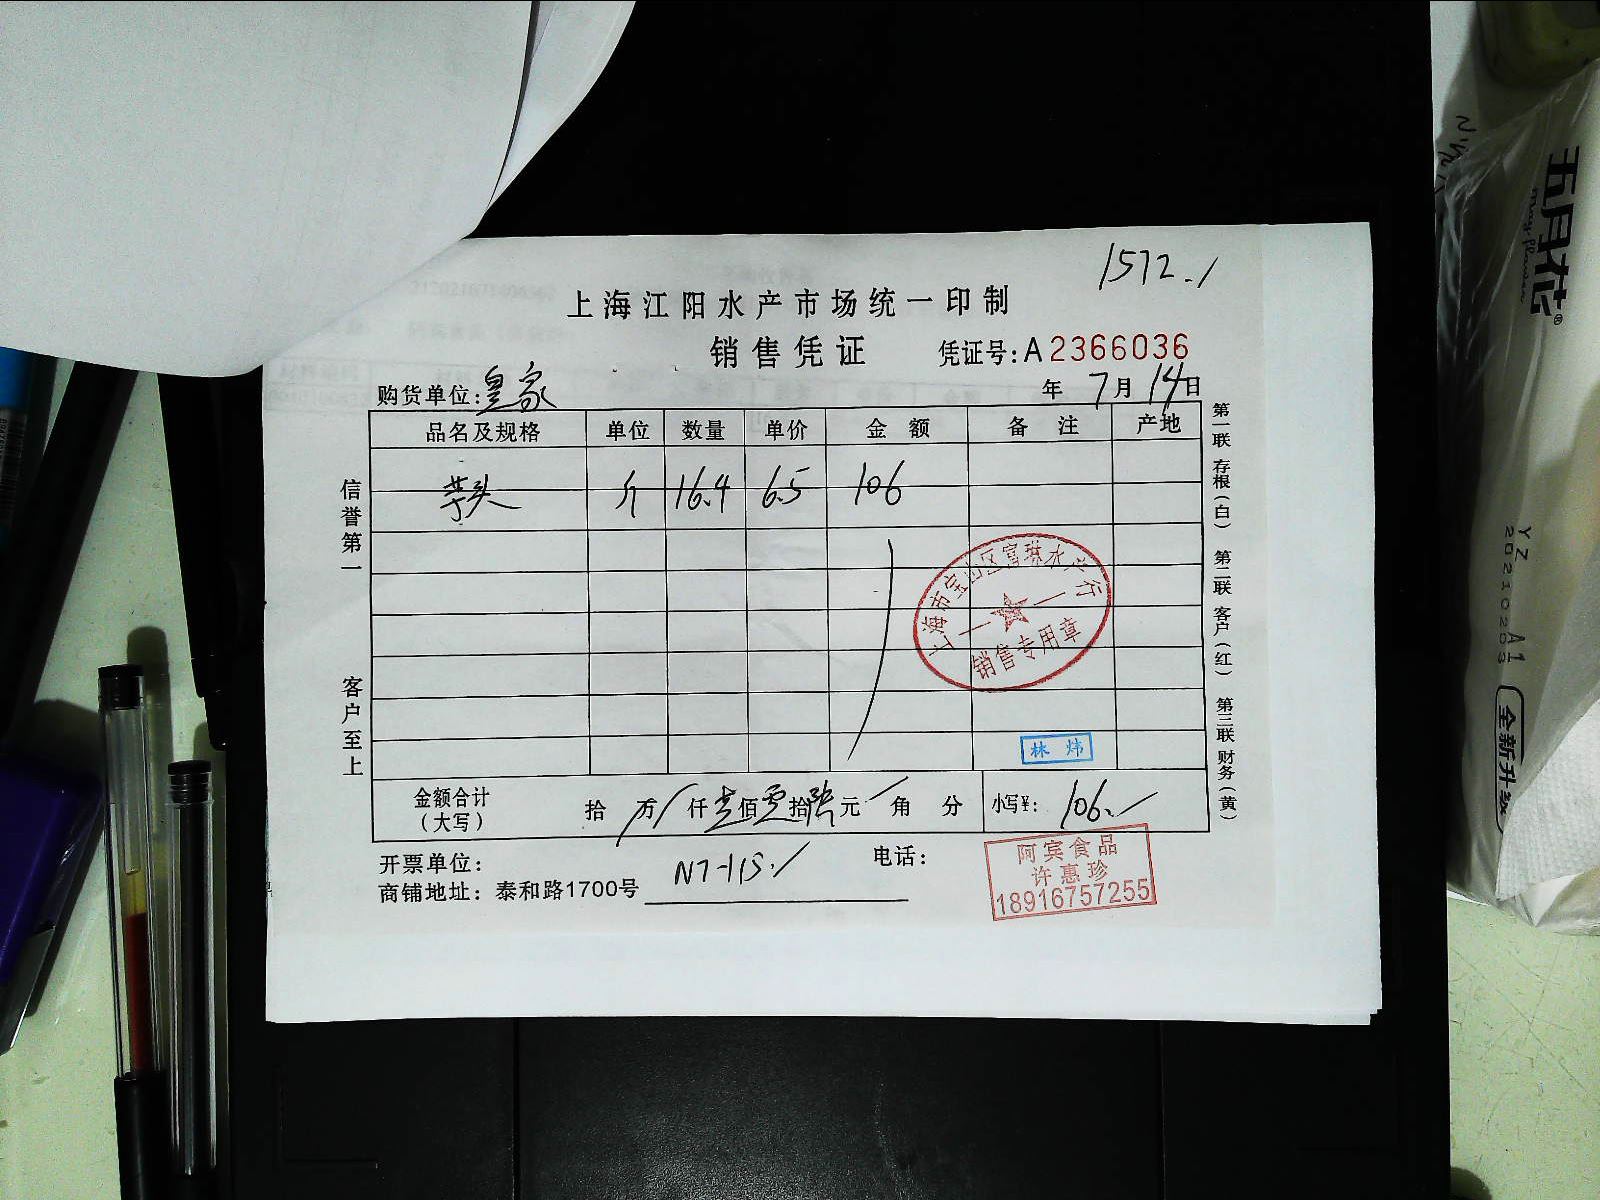 1572.
上海江阳水产市场统一印制
销售凭证 凭证号:A2366036
购货单位:皇家 年7月14日
品名及规格 单位 数量 单价 金额 备注 产地
芋头 斤 16.4 6.5 106
信誉第一
客户至上
上海市宝山区富琳水产行
销售专用章
林炜
金额合计(大写) 拾 万 仟 壹佰 零拾 陆元 角 分 小写¥: 106.
开票单位: 电话:
商铺地址: 泰和路1700号 N7-115.
阿宾食品
许惠珍
18916757255
第一联 存根(白) 第二联 客户(红) 第三联 财务(黄)
五月花®
May flower
YZ A1
20210203
全新升级